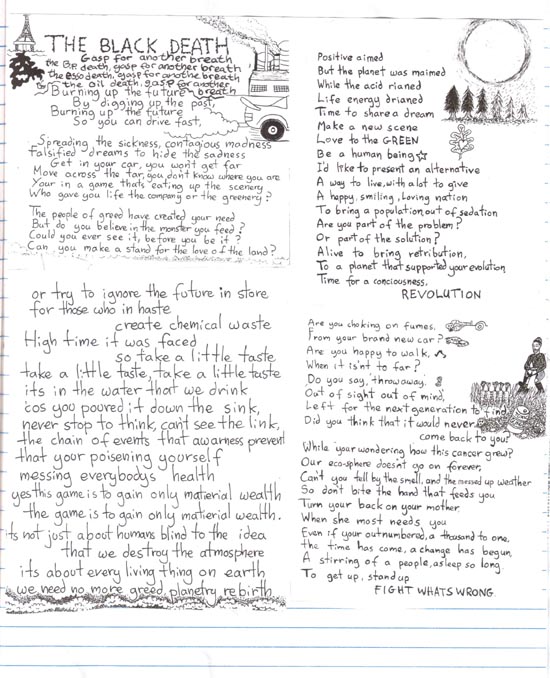 THE BLACK DEATH
Gasp for another breath
the B.P. death, gasp for another breath
the esso death, gasp for another breath
the oil death, gasp for another
breath
Burning up the future
By digging up the past,
Burning up the future
So you can drive fast,
Spreading the sickness, contagious madness
Falsified dreams to hide the sadness
Get in your car, you won't get far
Move across the tar, you don't know where you are
Your in a game thats eating up the scenery
Who gave you life the company or the greenery?
The people of greed have created your need
But do you believe in the monster you feed?
Could you ever see it, before you be it?
Can you make a stand for the love of the land?
or try to ignore the future in store
for those who in haste
create chemical waste
High time it was faced
so take a little taste
take a little taste, take a little taste
its in the water that we drink
'cos you poured it down the sink,
never stop to think, can't see the link,
the chain of events that awarness prevent
that your poisening yourself
messing everybodys health
yes this game is to gain only matierial wealth
the game is to gain only matierial wealth.
its not just about humans blind to the idea
that we destroy the atmosphere
its about every living thing on earth
we need no more greed, planetry rebirth.
Positive aimed
But the planet was maimed
While the acid rianed
Life energy drianed
Time to share a dream
Make a new scene
Love to the GREEN
Be a human being
I'd like to present an alternative
A way to live, with alot to give
A happy, smiling, loving nation
To bring a population out of sedation
Are you part of the problem?
Or part of the solution?
Alive to bring retribution,
To a planet that supported your evolution
Time for a conciousness,
REVOLUTION
Are you choking on fumes,
From your brand new car?
Are you happy to walk,
When it is'nt to far?
Do you say, 'throw away,
Out of sight out of mind,'
Left for the next generation to find
Did you think that it would never
come back to you?
While your wondering how this cancer grew?
Our eco-sphere doesnt go on forever,
Can't you tell by the smell, and the messed up weather
So don't bite the hand that feeds you
Turn your back on your mother
When she most needs you
Even if your outnumbered, a thousand to one,
the time has come, a change has begun
A stirring of a people, asleep so long
To get up, stand up
FIGHT WHATS WRONG